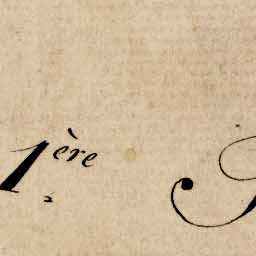 1.ère